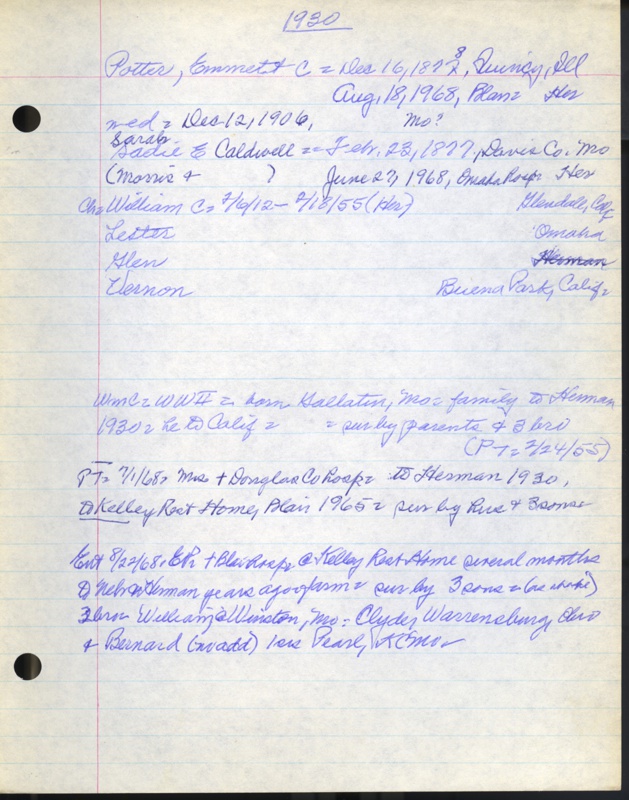 1930
Potter, Emmett C = Dec 16, 1878, Quincy, Ill
Aug, 18, 1968, Blair = Her
wed = Dec 12, 1906, Mo?
Sarah
Sadie E Caldwell = Feb. 23, 1877, Davis Co. Mo
(Morris + ) June 27, 1968, Omaha Hosp. Her
Ch = William C = 7/6/12 - 2/18/55 (Her) Glendale, Calif
Lester Omaha
Glen Herman
Vernon Buena Park, Calif =
Wm C = WW II = born Gallatin, Mo = family to Herman
1930 = he to Calif = = sur by parents & 3 bro
(PT = 2/24/55)
PT = 7/1/68 = Mrs + Douglas Co Hosp = to Herman 1930,
to Kelley Rest Home, Blair 1965 = sur by Hus + 3 sons =
Ent 8/22/68, EP + Blair Hosp = @ Kelley Rest Home several months
to Nebr @ Herman years ago = farm = sur by 3 sons =
3 bro = William @ Winston, Mo = Clyde, Warrensburg, Mo
+ Bernard (no add) 1 sis Pearl, KC Mo =